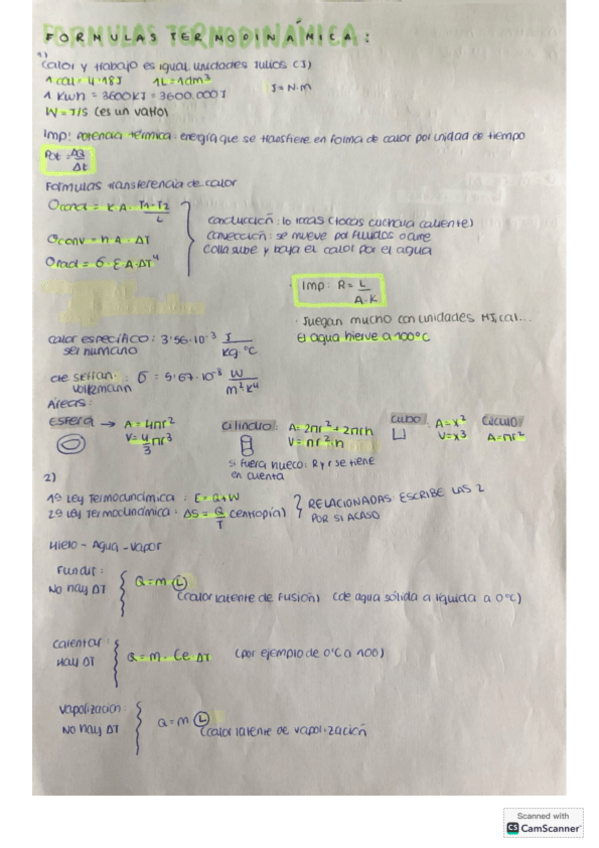 FORMULAS TERMODINÁMICA:
1)
Calor y trabajo es igual. unidades Julios (J)
1 cal = 4'18J 1L = 1dm³ J = N·m
1 Kwh = 3600KJ = 3600.000J
W = J/S (es un vatio)
Imp: Potencia térmica: energía que se transfiere en forma de calor por unidad de tiempo
Pot = ΔQ/Δt
Formulas transferencia de calor
Qcond = K A · T1-T2/L
Qconv = h·A·ΔT
Qrad = σ·ε·A·ΔT⁴
conducción: lo tocas (tocas cuchara caliente)
convección: se mueve por fluidos o aire
sube y baja el calor por el agua
Imp: R = L/A·K
· Juegan mucho con unidades
El agua hierve a 100°C
calor específico: 3'56·10⁻³ J/Kg °C
ser humano
cte σ = 5'67·10⁻³ W/m²K⁴
Áreas:
Esfera → A = 4πr²
V = 4/3 πr³
cilindro: A = 2πr² + 2πrh
V = πr²h
si fuera hueco: R y r se tiene
en cuenta
Cubo: A = x²
V = x³
Círculo: A = πr²
2)
1ª Ley Termodinámica: = Q + W
2ª Ley Termodinámica: ΔS = Q/T (entropía)
RELACIONADAS ESCRIBE LAS 2
POR SI ACASO
Hielo - Agua - Vapor
Fundir:
No hay ΔT
Q = m·L
(calor latente de fusión) (de agua sólida a líquida a 0°C)
Calentar:
Hay ΔT
Q = m·Ce·ΔT (por ejemplo de 0°C a 100)
Vapolización:
No hay ΔT
Q = m L
(calor latente de vapolización
Scanned with
CS CamScanner